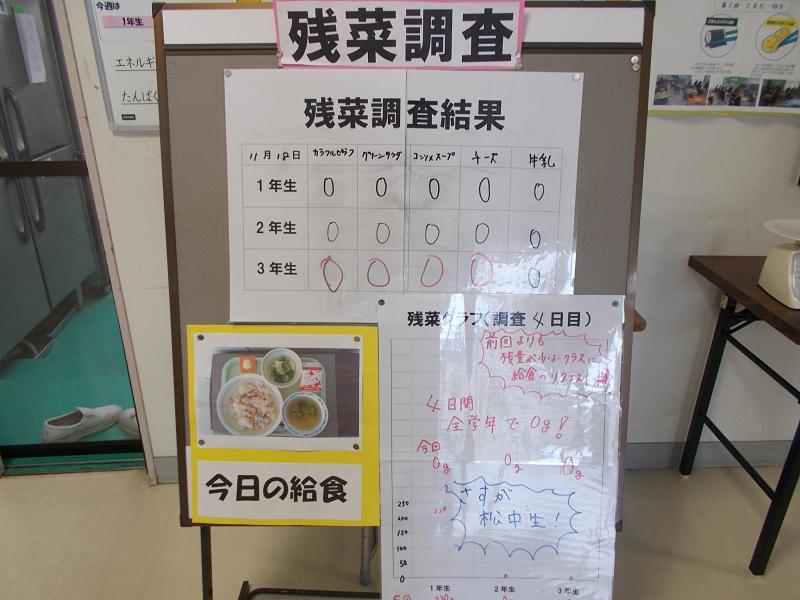 残菜調査
今週は
1年生
エネルギ
たんぱく
残菜調査結果
11月18日 カラフルピラフ グリーンサラダ コンソメスープ チーズ 牛乳
1年生 0 0 0 0 0
2年生 0 0 0 0 0
3年生 0 0 0 0 0
残菜グラフ(調査4日目)
前回よりも
給食のリクエスト
4日間
全学年で0g!
今回
0g 0g 0g
さすが
松中生!
250
200
150
100
50
0
1年生 2年生 3年生
前回
今日の給食